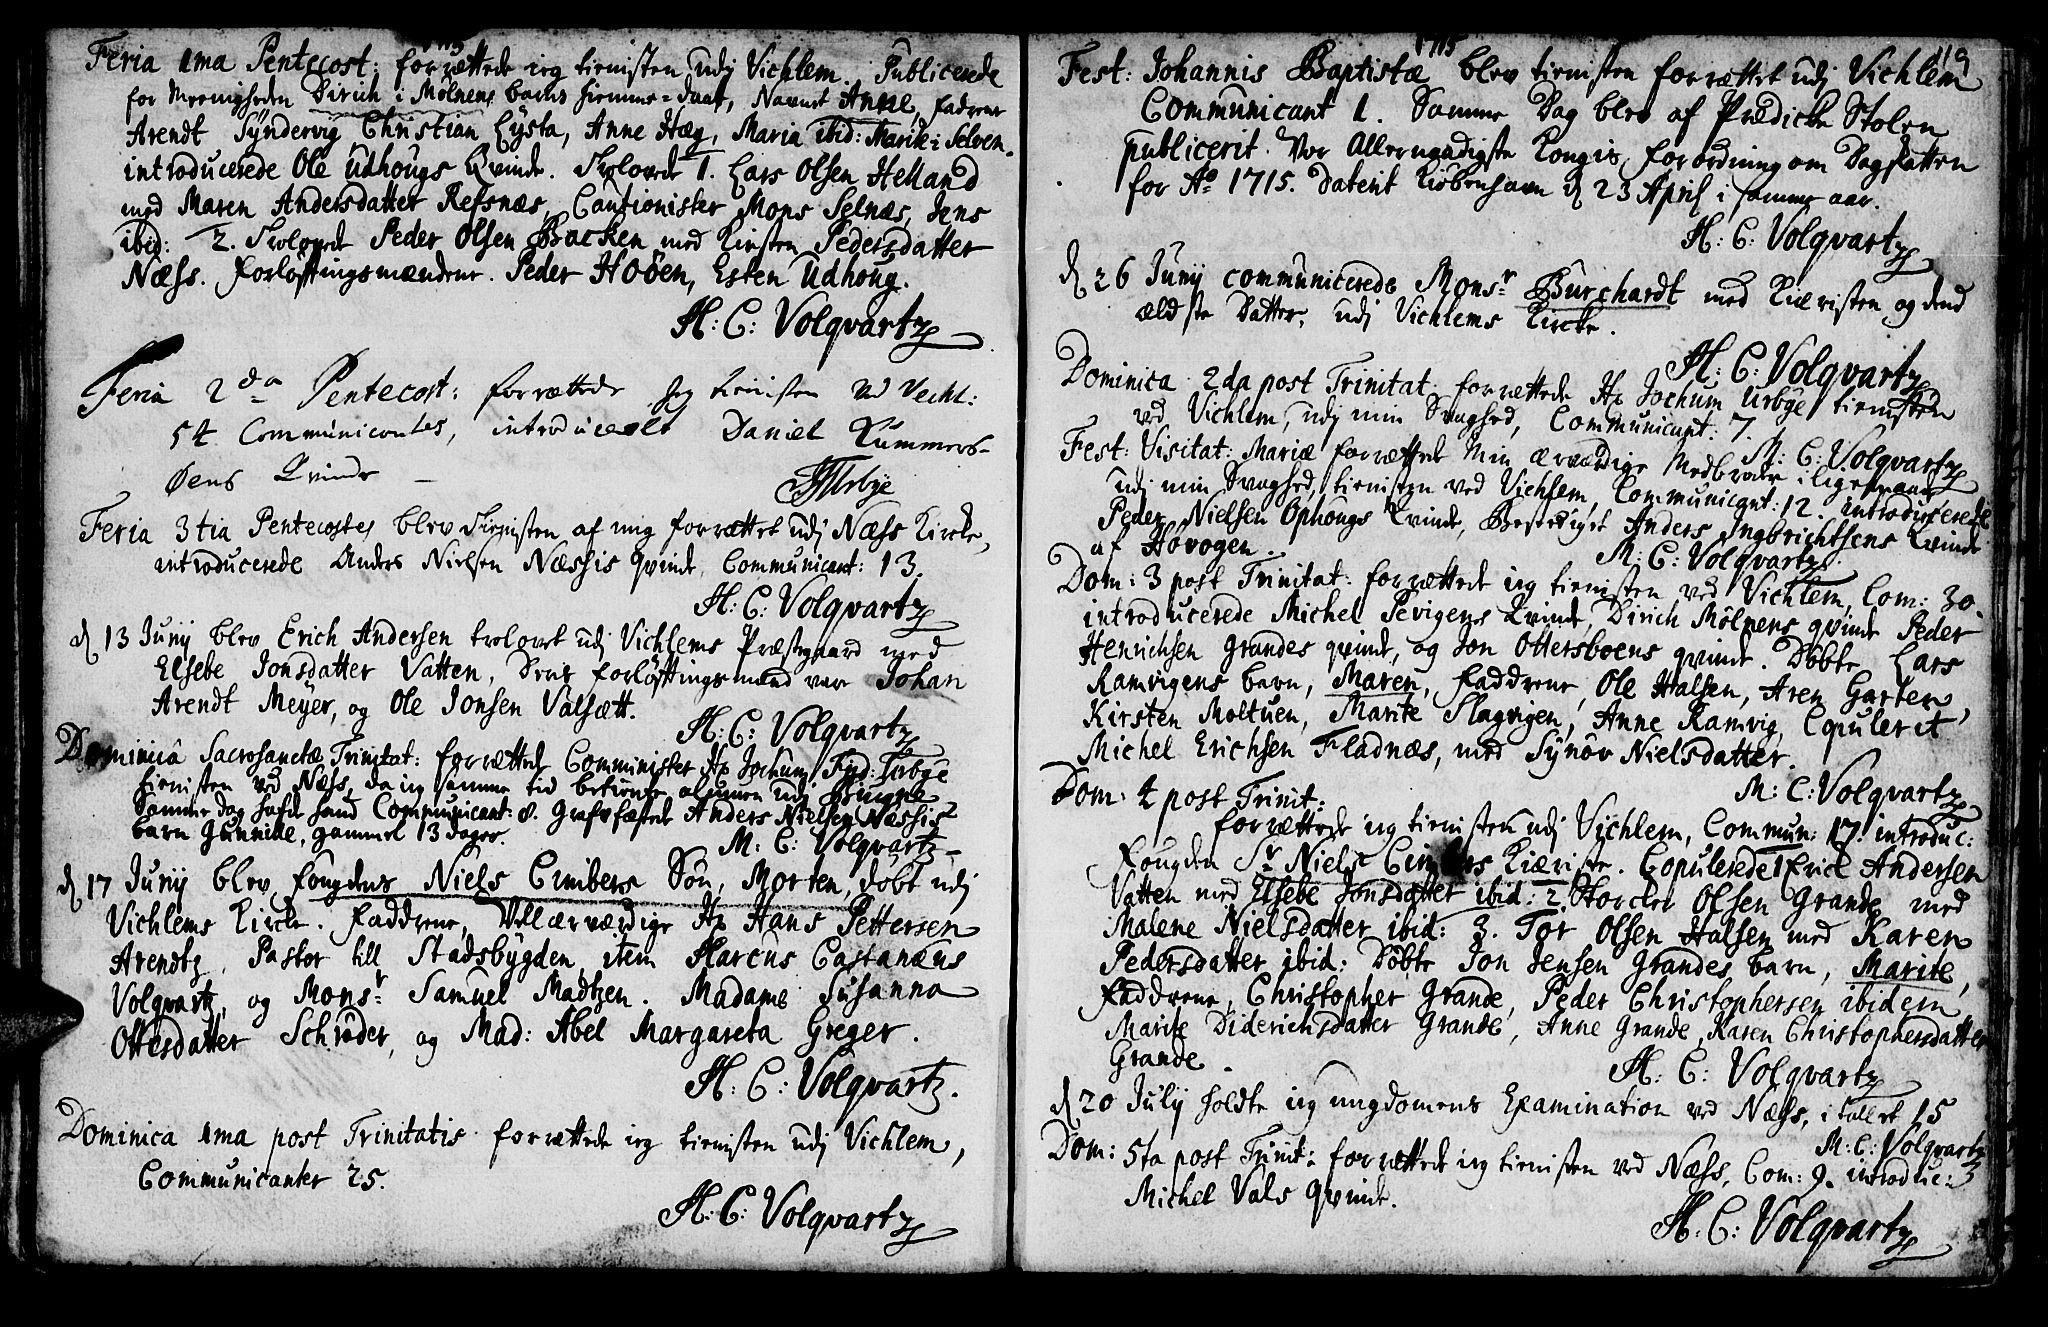 1715
Feria 1ma Pentecost: forrættede ieg tienisten udj Vichlem. Publicerede
for Meenigheden Dirich i Mølnens barns hiemme-daab, Navnet Anne, fadrene
Arendt Syndervig Christian Lysta, Anne Hæg, Maria ibid: Marite Selven.
introducerede Ole Udhougs Kvinde. Trolovede 1. Lars Olsen Helland
med Maren Andersdatter Refsnæs, Cautionister Mons Selnæs, Jens
ibid: 2. Trolovede Peder Olsen Backen med Kirsten Pedersdatter
Næss. Forløftingsmændene. Peder Hoøen, Esten Udhoug.
H: C: Volqvartz
Feria 2da Pentecost: forrættede Jeg tienisten ved Vechl:
54 Communicantes, introduceret Daniel Kummers-
øens Kvinde
JFUrbye
Feria 3tia Pentecostes blev Tienisten af mig forrættet udj Næss Kircke,
introducerede Anders Nielsen Næssis qvinde, Communicant: 13.
H: C: Volqvartz
d 13 Junij blev Erich Andersen trolovet udj Vichlems Præstegaard med
Elsebe Jonsdatter Vatten, Deris forløftingsmænd var Johan
Arendt Meyer, og Ole Jonsen Valsætt.
H: C: Volqvartz
Dominica Sacrosanctæ Trinitat: forrættede Comminister Hr Jochum Frid: Urbye
tienisten ved Næss, da ieg samme tid betiente alumnen udj Biugne
Samme dag hafde hand Communicant: 8. Grafvfæstede Anders Nielsen Næssis
barn Gunnilde, gammel 13 dager.
M: C: Volqvartz
d 17 Junij blev fougdens Niels Cimbers Søn, Morten, døbt udj
Vichlems Kircke. Faddrene, Vellærværdige Hr Hans Pettersen
Arendtz, Pastor till Stadsbygden, item Marcus Castanæus
Volqvartz, og Monsr Samuel Madtzen. Madame Susanna
Ottesdatter Schrøder, og Mad: Abel Margareta Greger.
H: C: Volqvartz.
Dominica 1ma post Trinitatis forrættede ieg tienisten udj Vichlem,
Communicanter 25.
H: C: Volqvartz
1715
119
Fest: Johannis Baptistæ blev tienisten forrættet udj Vichlem
Communicant 1. Samme Dag blev af Prædicke Stolen
publicerit. Vor Allernaadigste Kongis, forordning om Dagskatten
for Ao 1715. Daterit Kiøbenhavn d 23 April i samme aar.
H: C: Volqvartz
d 26 Junij communicerede Monsr Burchardt med Kieristen og dend
ældste Datter, udj Vichlems Kircke.
H: C: Volqvartz
Dominica 2da post Trinitat: forrættede Hr Jochum Urbye tienisten
ved Vichlem, udj min Svaghed, Communicant: 7.
M: C: Volqvartz
Fest: Visitat: Mariæ forrættede Min ærværdige Medbroder
udj min Svaghed, tienisten ved Vichlem, Communicant: 12. introducerede
Peder Nielsen Ophougs Kvinde, Anders Ingbrichtsens Kvinde
af Hovogen.
M: C: Volqvartz
Dom: 3 post Trinitat: forrættede ieg tienisten ved Vichlem, Com: 30.
introducerede Michel Pevigens Kvinde, Dirich Mølnens qvinde Peder
Henrichsen Grandes qvinde, og Jon Ottersboens qvinde. Døbte Lars
Ramvigens barn, Maren, Faddrene, Ole Halsen, Aren Garten,
Kirsten Moltuen, Marite Slagvigen, Anne Ramvig, Copulerit
Michel Erichsen Fladnæs, med Synøv Nielsdatter.
M: C: Volqvartz
Dom: 4 post Trinit:
forrættede ieg tienisten udj Vichlem, Commun: 17. introduc:
Fougden Sr Niels Cimbers Kiæriste. Copulerede 1 Erich Andersen
Vatten med Elsebe Jonsdatter ibid: 2. Storcker Olsen Grande med
Malene Nielsdatter ibid: 3. Tor Olsen Halsen med Karen
Pedersdatter ibid: Døbte Jon Jensen Grandes barn, Marite,
Faddrene, Christopher Grande, Peder Christophersen ibidem
Marite Diderichsdatter Grande, Anne Grande, Karen Christophersdatter
Grande.
H: C: Volqvartz
d 20 July holdte ieg ungdomens Examination ved Næss, i tallet 15
M: C: Volqvartz
Dom: 5ta post Trinit: forrættede ieg tienisten ved Næss, Com: 9. introduc:
Michel Vals qvinde.
H: C: Volqvartz